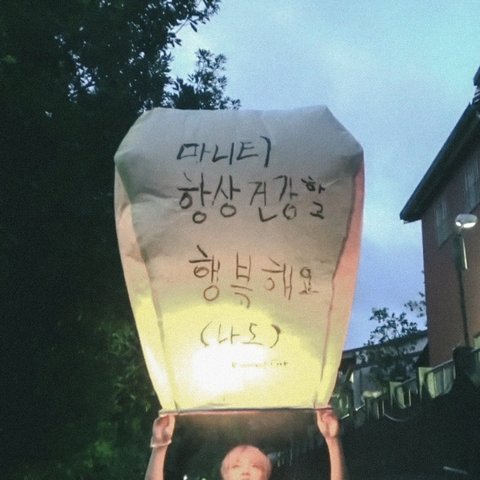 마니티
항상 건강할
행복해요
(나도)